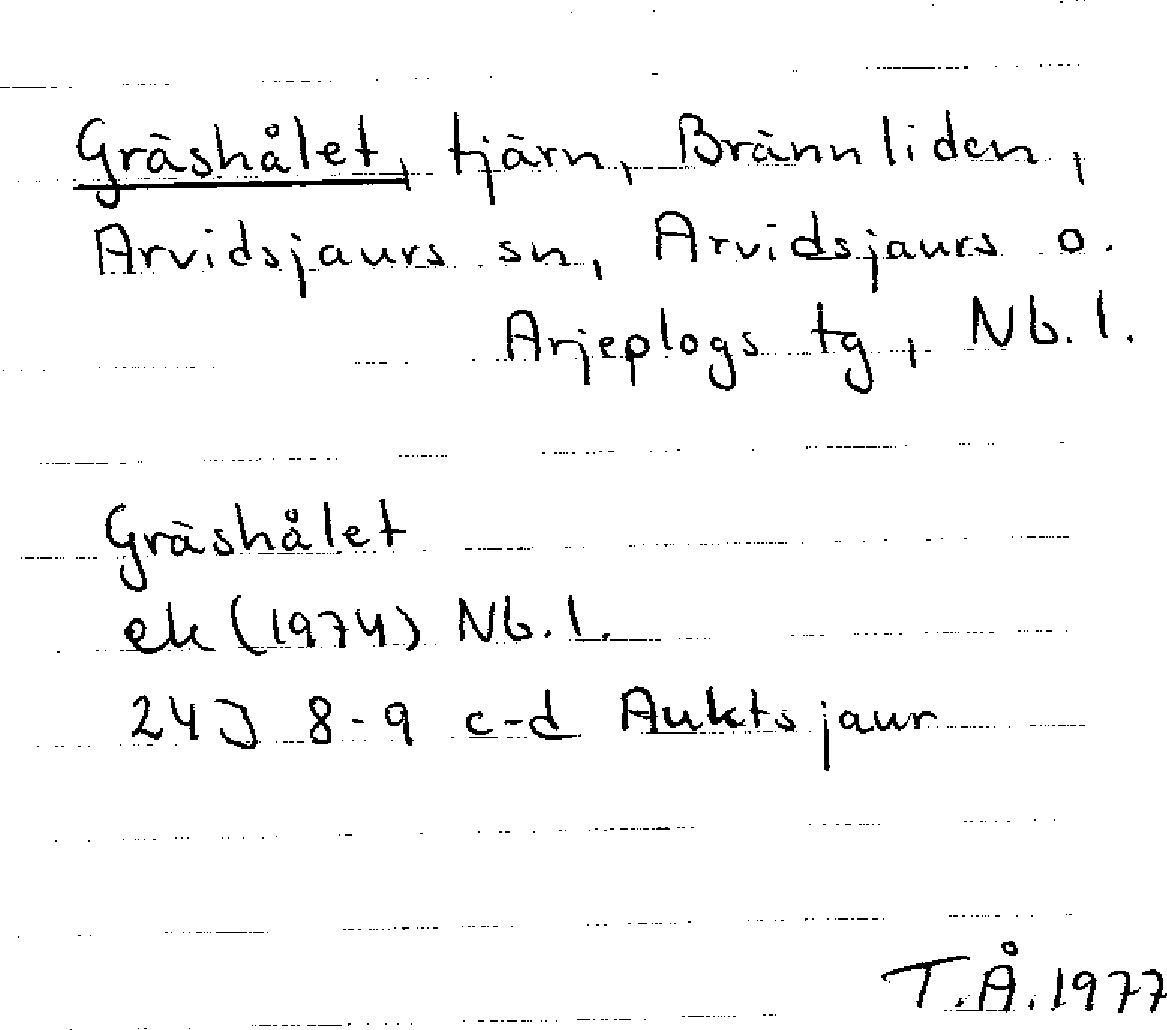 Gräshålet, tjärn, Brännliden,
Arvidsjaurs sn, Arvidsjaurs o.
Arjeplogs tg, Nb. l.
Gräshålet
ek (1974) Nb. l.
24J 8-9 c-d Auktsjaur
T.Å. 1977